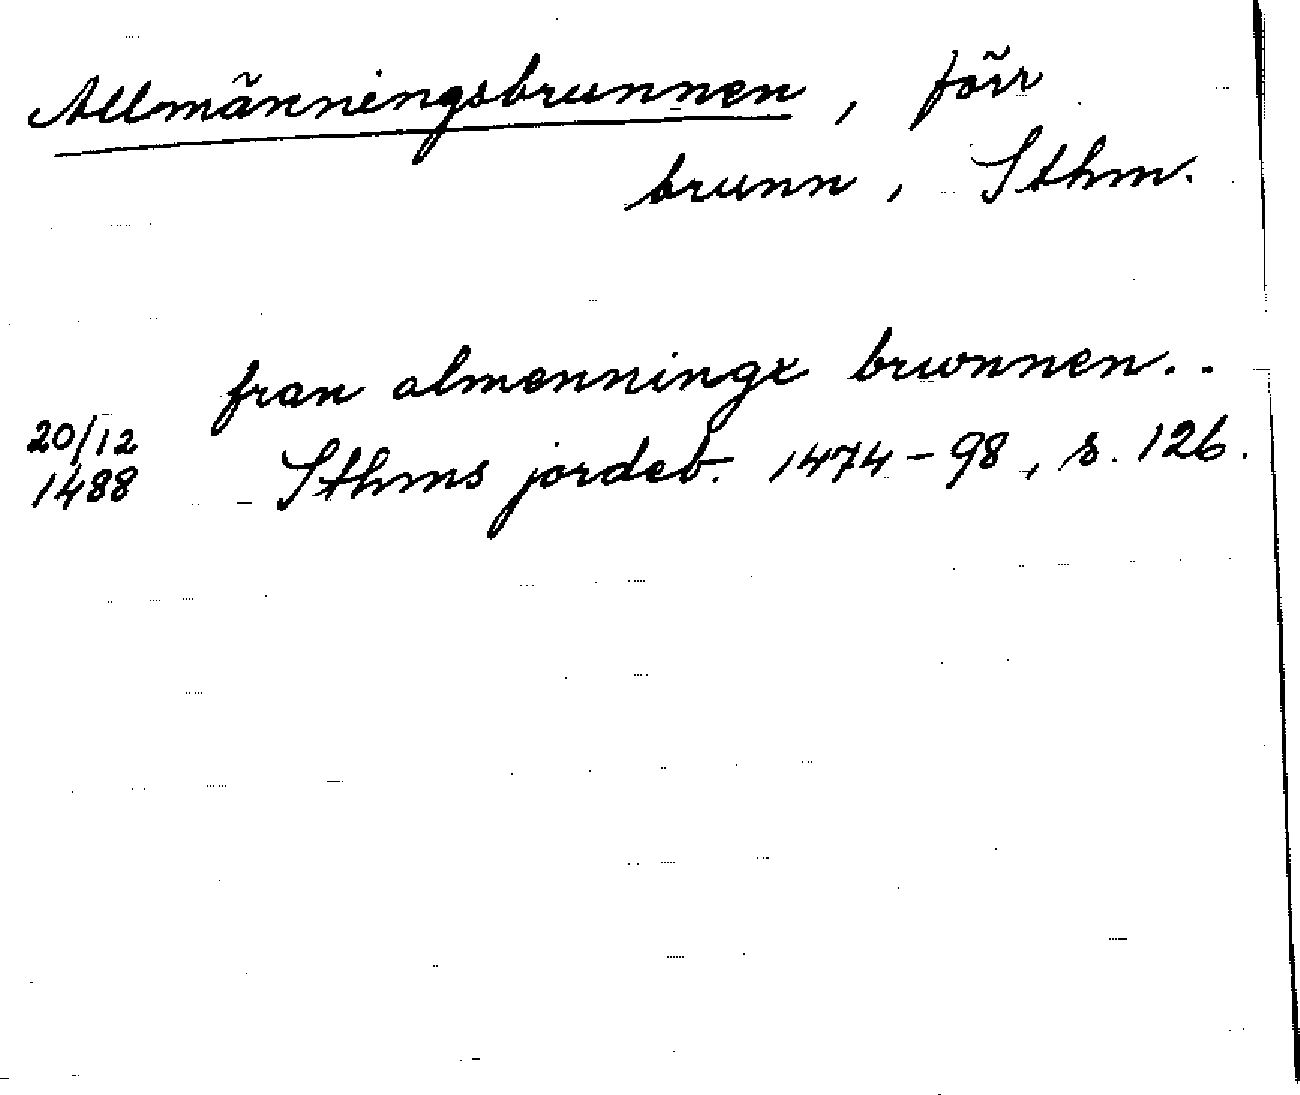 Allmänningsbrunnen, förr
brunn, Sthm.
fran almenningx brwnnen..
20/12
1488
Sthms jordeb. 1474-98, s. 126.